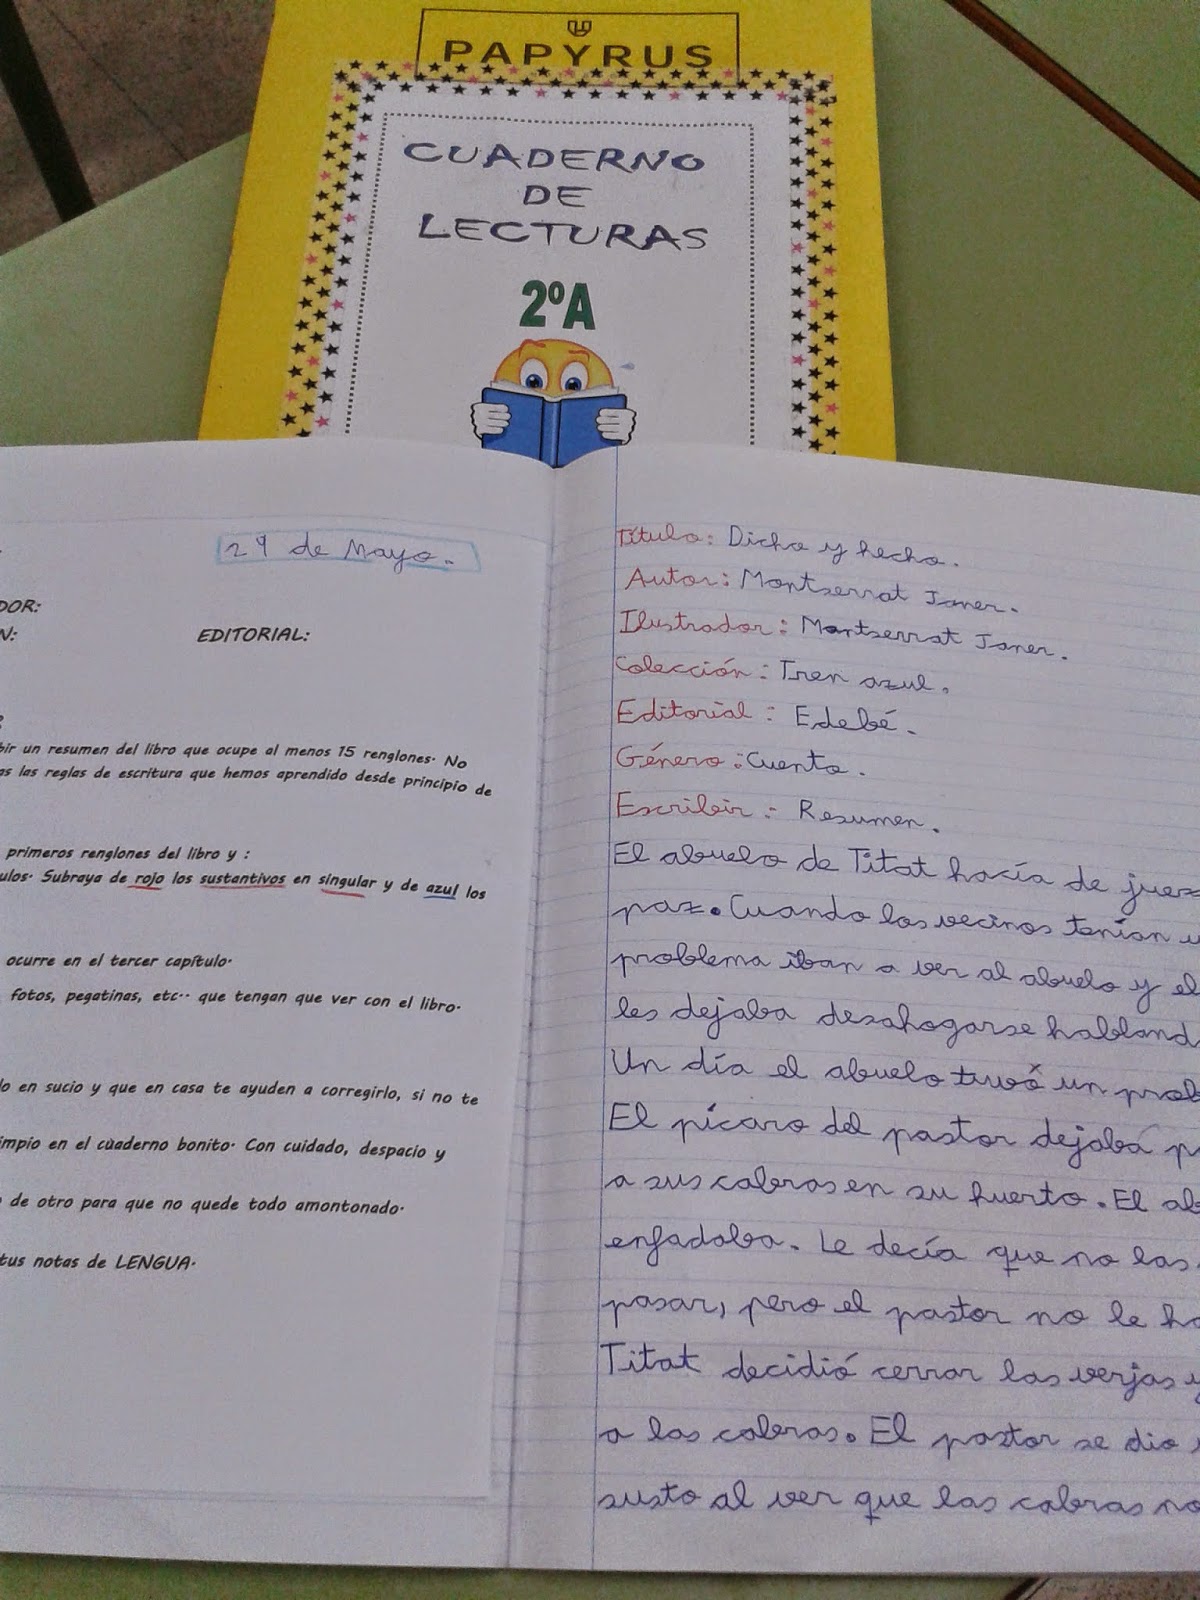 PAPYRUS
CUADERNO
DE
LECTURAS
2ºA
29 de Mayo.
DOR:
N: EDITORIAL:
bir un resumen del libro que ocupe al menos 15 renglones. No
as las reglas de escritura que hemos aprendido desde principio de
primeros renglones del libro y :
ulos. Subraya de rojo los sustantivos en singular y de azul los
ocurre en el tercer capítulo.
fotos, pegatinas, etc.. que tengan que ver con el libro.
lo en sucio y que en casa te ayuden a corregirlo, si no te
impio en el cuaderno bonito. Con cuidado, despacio y
de otro para que no quede todo amontonado.
tus notas de LENGUA.
Título: Dicho y hecho.
Autor: Montserrat Janer.
Ilustrador: Montserrat Janer.
Colección: Tren azul.
Editorial: Edebé.
Género: Cuento.
Escribir: Resumen.
El abuelo de Titat hacía de juez
paz. Cuando los vecinos tenían u
problema iban a ver al abuelo y el
les dejaba desahogarse habland
Un día el abuelo tuvó un prob
El pícaro del pastor dejaba p
a sus cabras en su huerto. El ab
enfadaba. Le decía que no las
pasar, pero el pastor no le ha
Titat decidió cerrar las verjas y
a las cabras. El pastor se dio
susto al ver que las cabras no